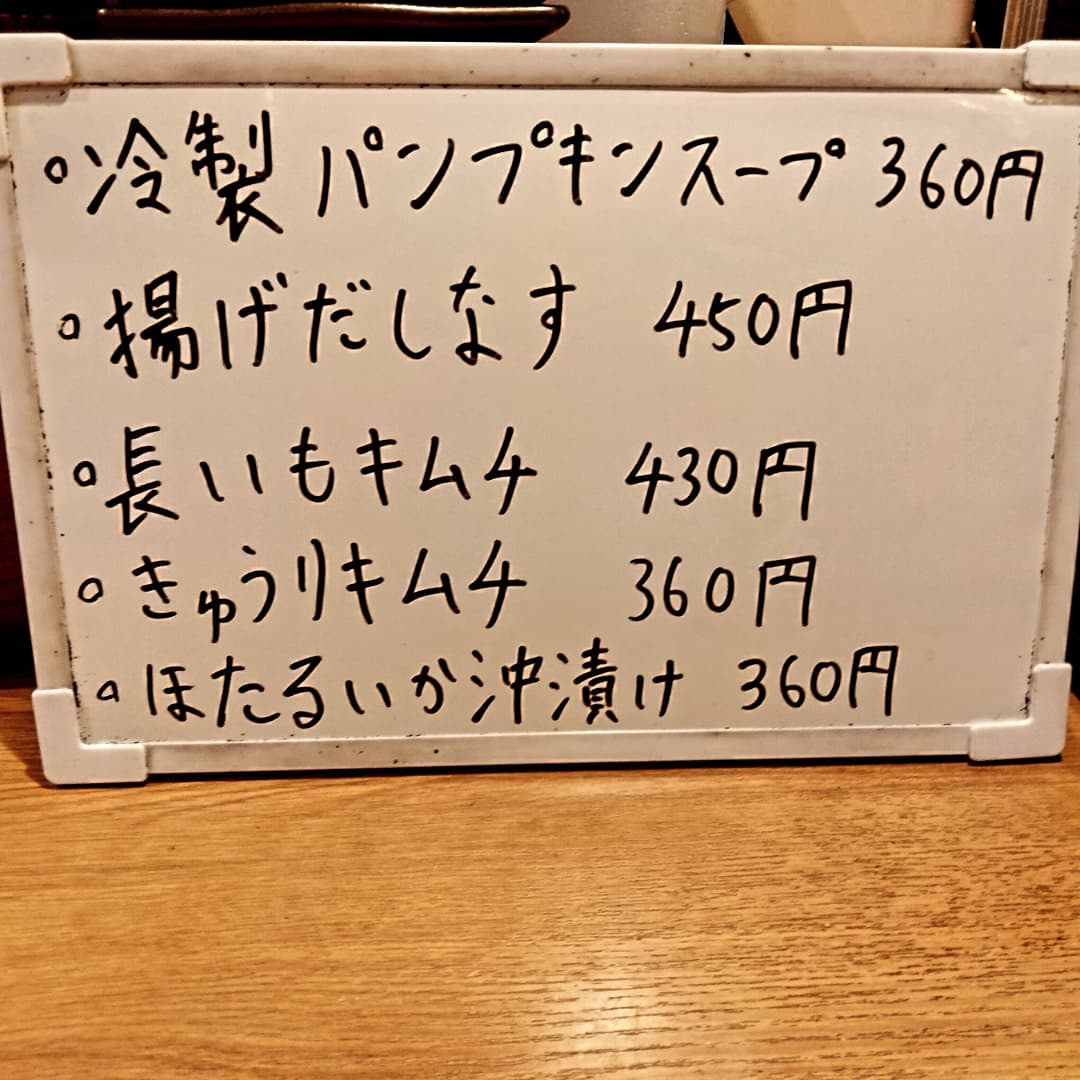 。冷製 パンプキンスープ 360円
。揚げだしなす 450円
。長いもキムチ 430円
。きゅうりキムチ 360円
。ほたるいか沖漬け 360円